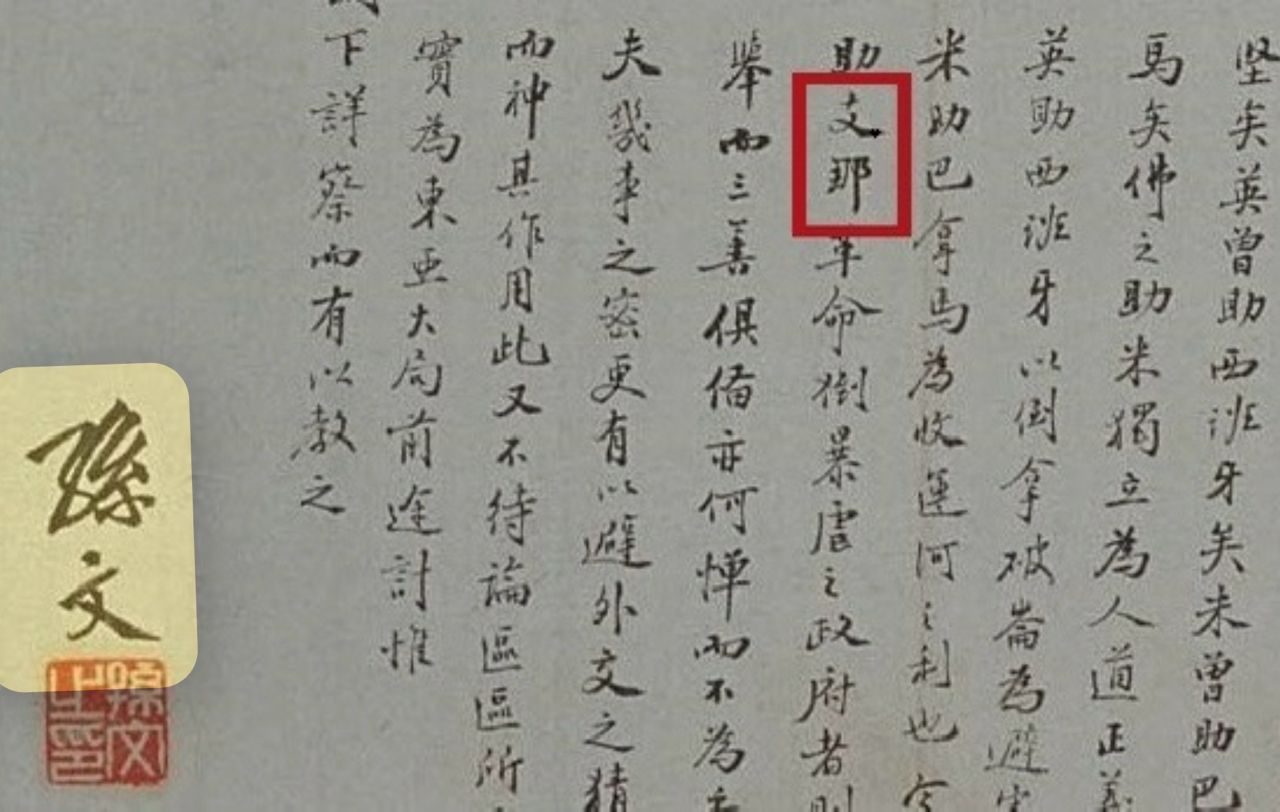 坚矣英曾助西班牙矣米曾助巴
馬矣佛之助米獨立為人道正義
英助西班牙以倒拿破崙為避害
米助巴拿馬為收運河之利也
助支那革命倒暴虐之政府者則
舉而三善俱備亦何惮而不為
夫幾事之密更有以避外交之猜
而神其作用此又不待論區區所
實為東亞大局前途計惟
下詳察而有以教之
孫文
孫文之印